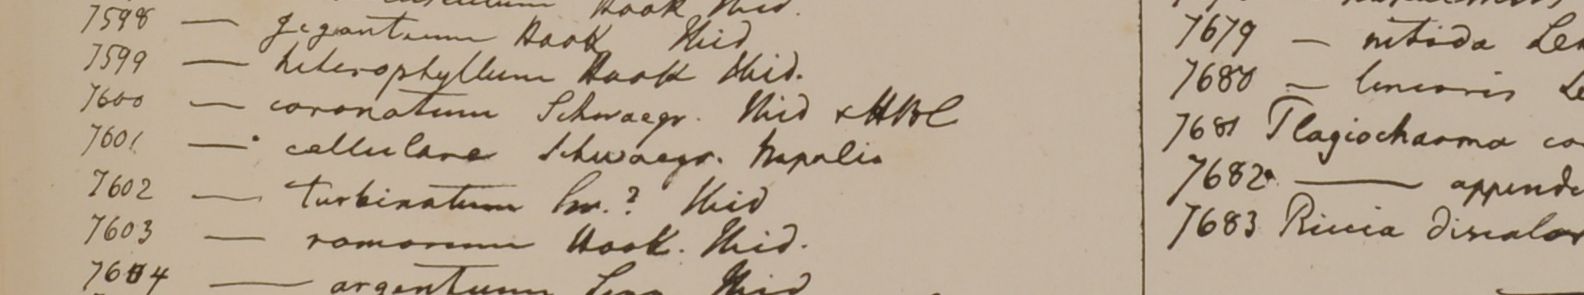 Hook Ibid.
7598 — giganteum Hook Ibid
7599 — heterophyllum Hook Ibid.
7600 — coronatum Schwaegr. Ibid & HBC
7601 — cellulare Schwaegr. Napalia
7602 — turbinatum Sw.? Ibid
7603 — ramosum Hook. Ibid.
7604 — argenteum Linn Ibid
7679 — nitida
7680 — linearis
7681 Plagiochasma
7682 —
7683 Riccia discolor